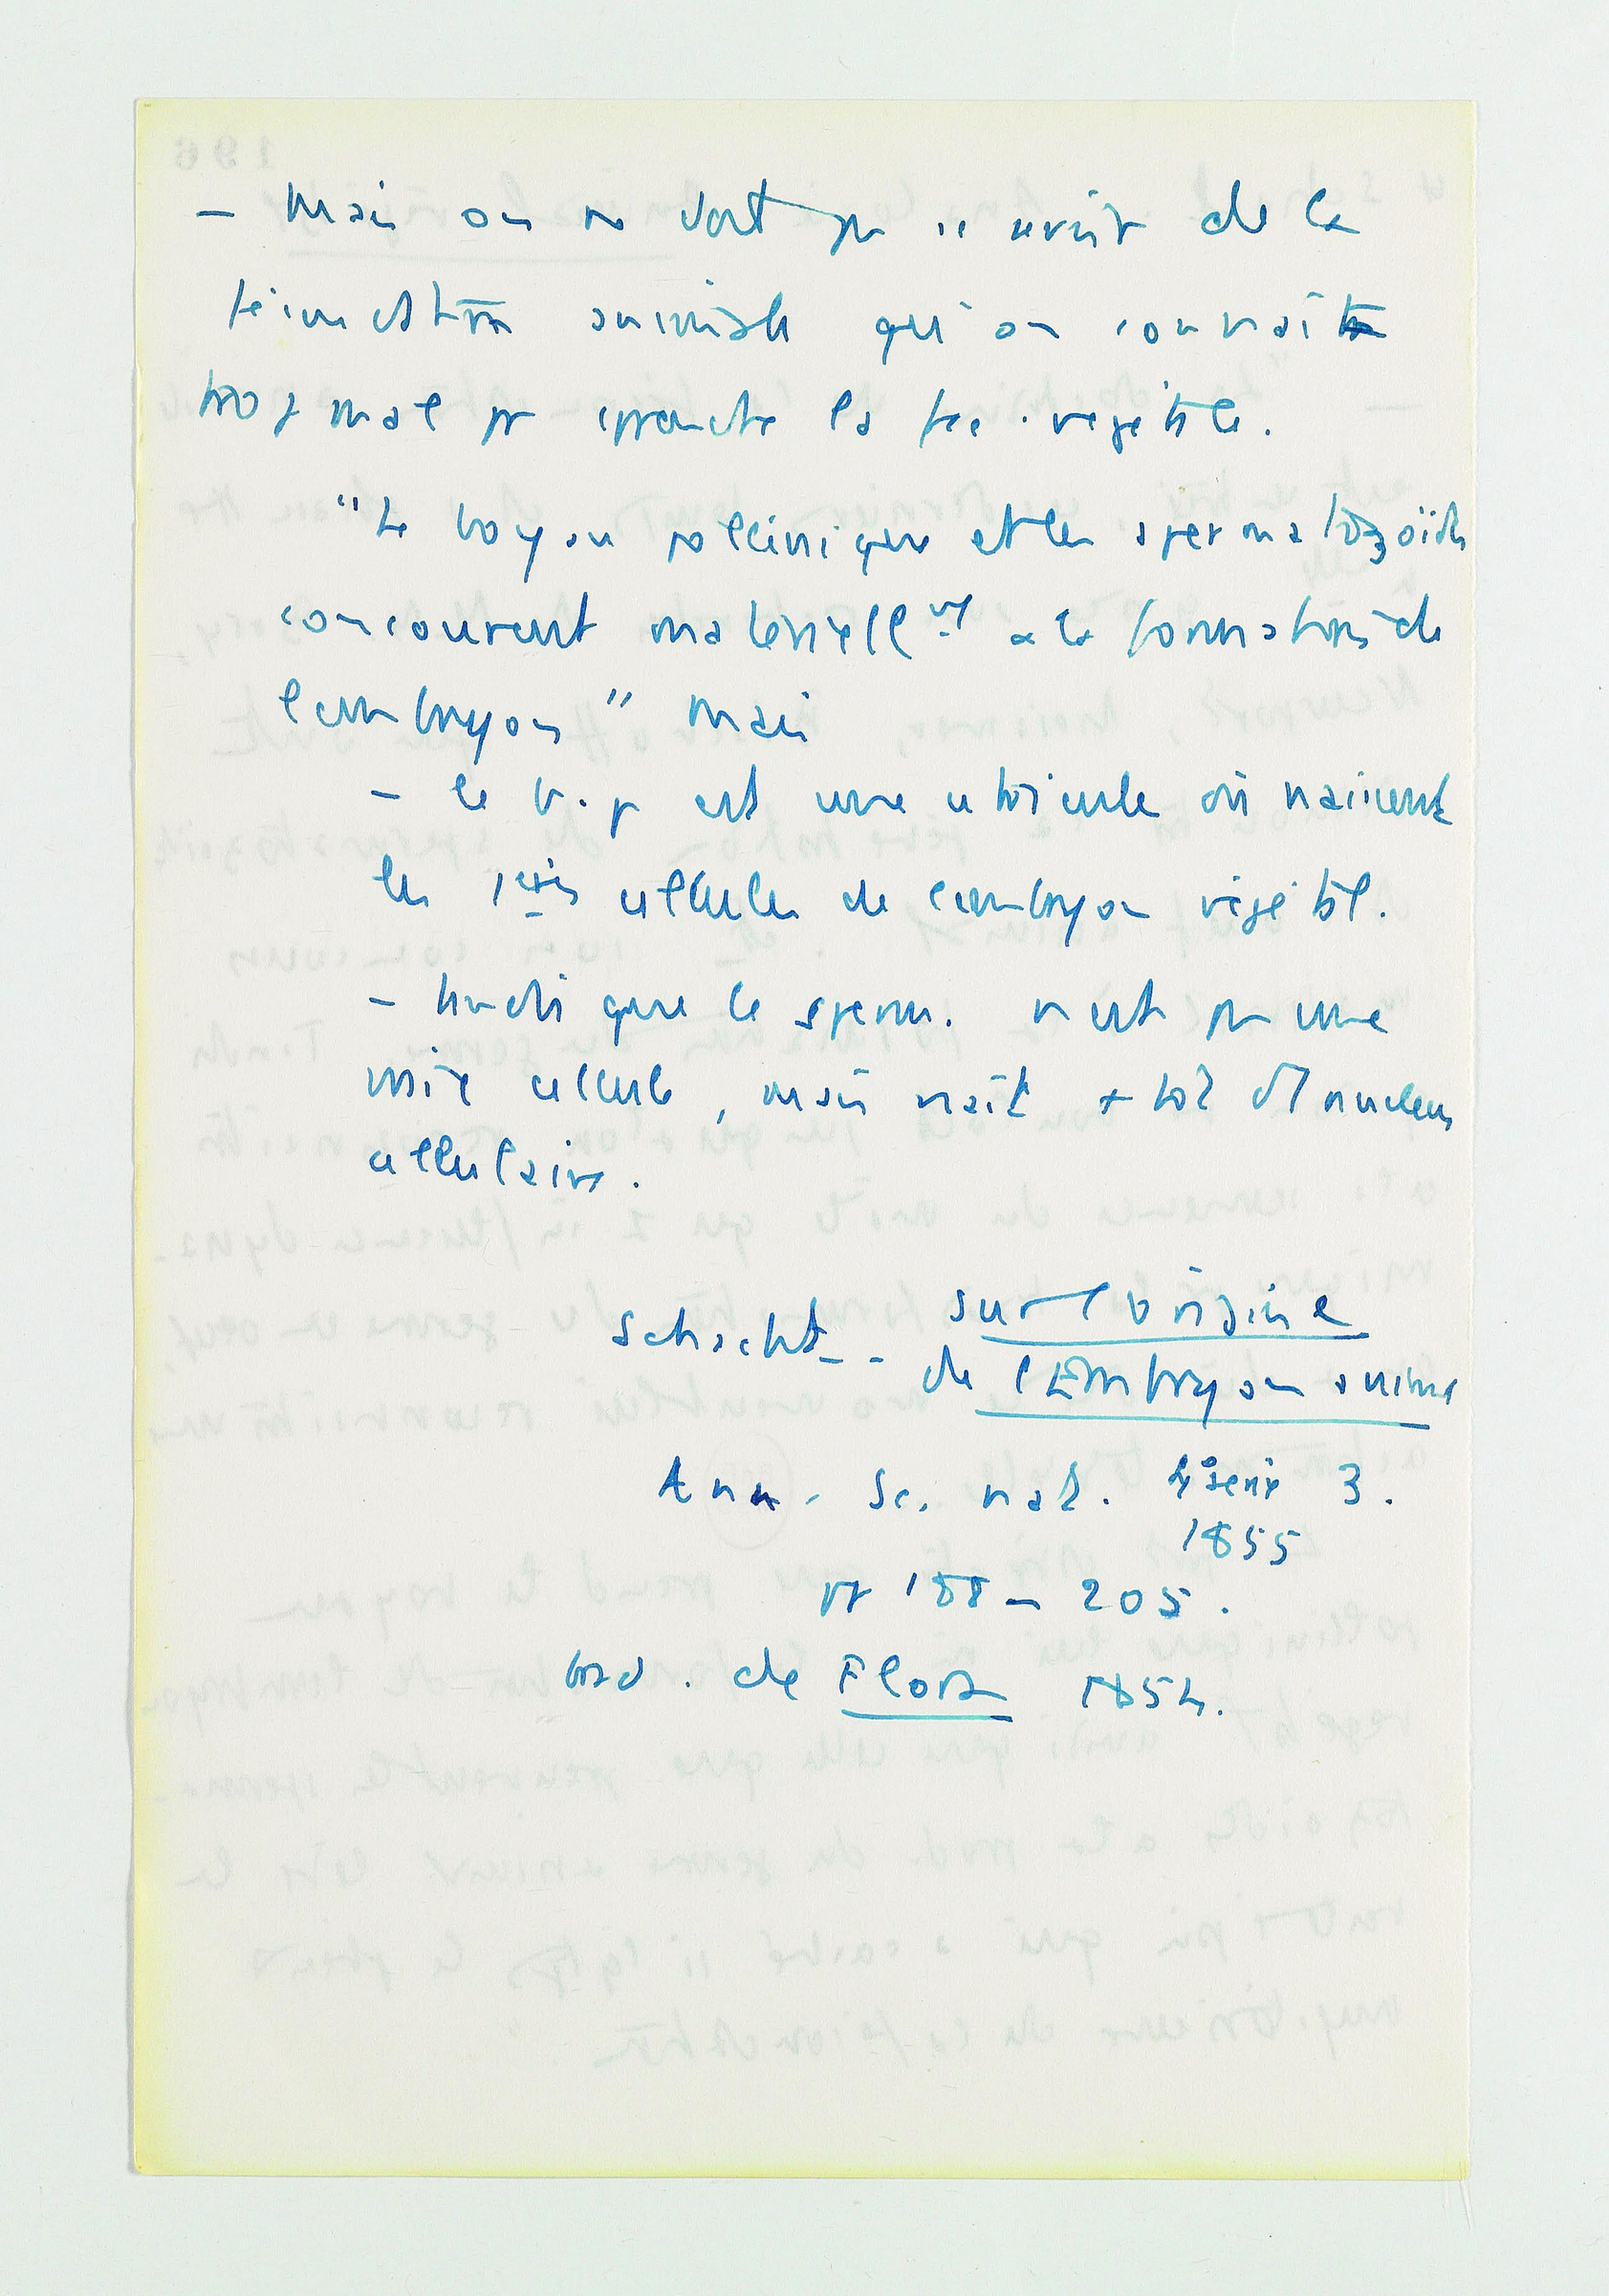 - Mais on ne doit pas se servir de la
fécondation animale qu'on connaît
trop mal pr comprendre la féc. végétale.
"Le boyau pollinique et les spermatozoïdes
concourent matériellmt a la formation de
l'embryon" Mais
- le b. p est une utricule où naissent
les 1eres cellules de l'embryon végétal.
- tandis que le sperm. n'est pas une
vraie cellule, mais naît + tôt d'1 nucleus
cellulaire.
Schacht -- Sur l'origine
de l'Embryon anima
Ann. Sc. nat. 4°serie 3.
1855
pp 188 - 205.
trad. de Flora 1854.